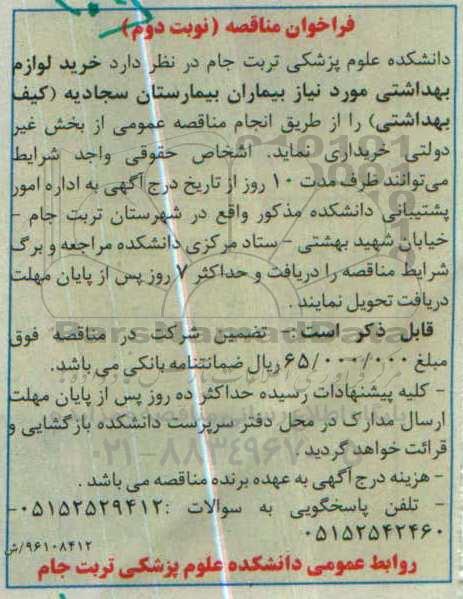 فراخوان مناقصه (نوبت دوم)
دانشکده علوم پزشکی تربت جام در نظر دارد خرید لوازم
بهداشتی مورد نیاز بیماران بیمارستان سجادیه (کیف
بهداشتی) را از طریق انجام مناقصه عمومی از بخش غیر
دولتی خریداری نماید. اشخاص حقوقی واجد شرایط
می‌توانند ظرف مدت ۱۰ روز از تاریخ درج آگهی به اداره امور
پشتیبانی دانشکده مذکور واقع در شهرستان تربت جام -
خیابان شهید بهشتی - ستاد مرکزی دانشکده مراجعه و برگ
شرایط مناقصه را دریافت و حداکثر ۷ روز پس از پایان مهلت
دریافت تحویل نمایند.
قابل ذکر است:- تضمین شرکت در مناقصه فوق
مبلغ ۶۵/۰۰۰/۰۰۰ ریال ضمانتنامه بانکی می باشد.
- کلیه پیشنهادات رسیده حداکثر ده روز پس از پایان مهلت
ارسال مدارک در محل دفتر سرپرست دانشکده بازگشایی و
قرائت خواهد گردید.
- هزینه درج آگهی به عهده برنده مناقصه می باشد.
- تلفن پاسخگویی به سوالات :۰۵۱۵۲۵۲۹۴۱۲-
۰۵۱۵۲۵۴۲۴۶۰
۹۶۱۰۸۴۱۲/ش
روابط عمومی دانشکده علوم پزشکی تربت جام
ParsNamadData
۰۲۱-۸۸۳۴۹۶۷۰